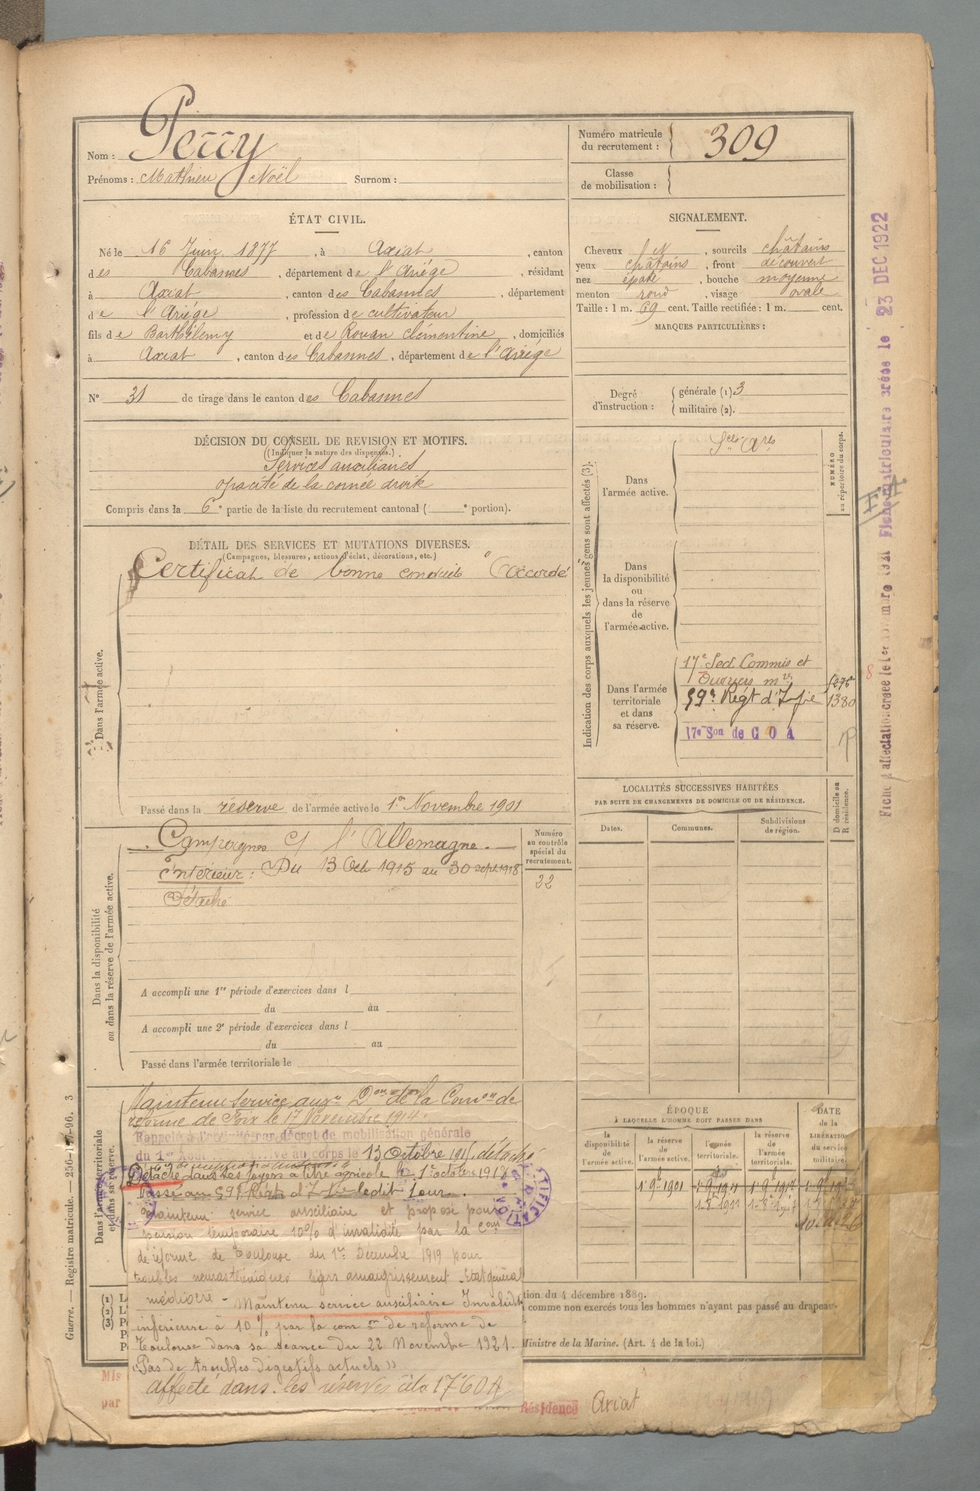 Nom : Peccy
Prénoms : Mathieu Noël Surnom :
Numéro matricule du recrutement : 309
Classe de mobilisation :
ÉTAT CIVIL.
Né le 16 Juin 1877, à Axiat, canton
des Cabannes, département de l'Ariége, résidant
à Axiat, canton des Cabannes, département
de l'Ariége, profession de cultivateur
fils de Barthélemy et de Rouan Clémentine, domiciliés
à Axiat, canton des Cabannes, département de l'Ariége
N° 31 de tirage dans le canton des Cabannes
SIGNALEMENT.
Cheveux ch N, sourcils châtains
yeux châtains, front découvert
nez épaté, bouche moyenne
menton rond, visage ovale
Taille : 1 m. 69 cent. Taille rectifiée : 1 m. cent.
MARQUES PARTICULIÈRES :
Degré d'instruction : générale (1) 3
militaire (2).
DÉCISION DU CONSEIL DE REVISION ET MOTIFS.
(Indiquer la nature des dispenses.)
Services auxiliaires
opacité de la cornée droite
Compris dans la 6e partie de la liste du recrutement cantonal ( e portion).
DÉTAIL DES SERVICES ET MUTATIONS DIVERSES.
(Campagnes, blessures, actions d'éclat, décorations, etc.)
Certificat de bonne conduite "accordé
Dans l'armée active.
Passé dans la réserve de l'armée active le 1er Novembre 1901
Indication des corps auxquels les jeunes gens sont affectés (3).
NUMÉRO au répertoire du corps.
Dans l'armée active.
Dans la disponibilité ou dans la réserve de l'armée active.
Dans l'armée territoriale et dans sa réserve.
17e Sect Commis et
Ouvriers
59e Régt d'Inf
1380
17e Son de C O A
LOCALITÉS SUCCESSIVES HABITÉES
PAR SUITE DE CHANGEMENTS DE DOMICILE OU DE RÉSIDENCE.
Dates. Communes. Subdivisions de région.
Campagnes C/ l'Allemagne.
Intérieur : Du 13 Oct 1915 au 30 sept 1918
Détaché
Numéro au contrôle spécial du recrutement.
22
Dans la disponibilité ou dans la réserve de l'armée active.
A accompli une 1re période d'exercices dans l
du au
A accompli une 2e période d'exercices dans l
du au
Passé dans l'armée territoriale le
Maintenu service auxre Don de la Comon de
réforme de Foix le 17 Novembre 1914.
Rappelé à l'activité par décret de mobilisation générale
du 1er Août Arrivé au corps le 13 Octobre 1915 détaché
Détaché dans ses foyers à titre agricole le 1er octobre 1918
Passé au 59e Régt d'Inf ledit jour
Maintenu service auxiliaire et proposé pour
pension temporaire 10% d'invalidité par la Con
de réforme de Toulouse du 1er Décembre 1919 pour
troubles neurasthéniques légers amaigrissement. Etat général
médiocre - Maintenu service auxiliaire Invalidité
inférieure à 10% par la com on de réforme de
Toulouse dans sa séance du 22 Novembre 1921.
"Pas de troubles digestifs actuels"
affecté dans les réserves à la 17e COA
ÉPOQUE
À LAQUELLE L'HOMME DOIT PASSER DANS
la disponibilité de l'armée active.
la réserve de l'armée active.
l'armée territoriale.
la réserve de l'armée territoriale.
DATE de la LIBÉRATION du service militaire.
tion du 4 décembre 1889.
comme non exercés tous les hommes n'ayant pas passé au drapeau
Ministre de la Marine. (Art. 4 de la loi.)
Résidence Axiat
Guerre. — Registre matricule. 3
Fiche matriculaire créée le 23 DEC 1922